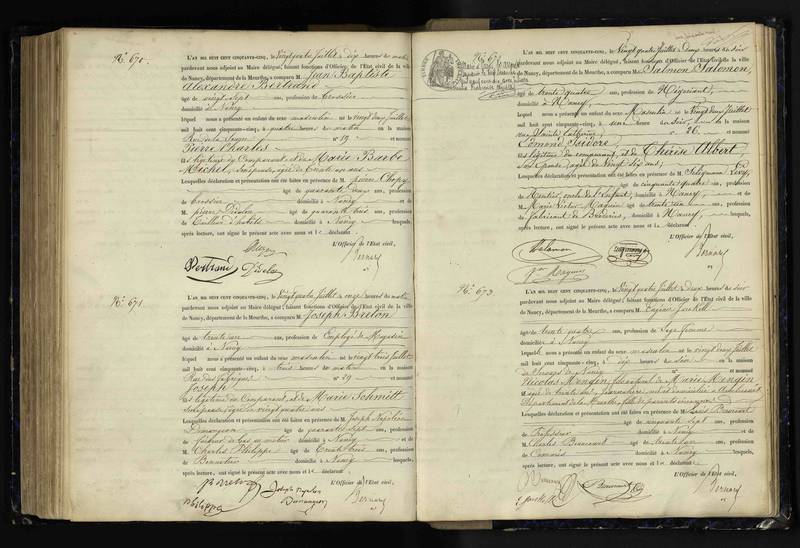 N.° 670.
L'AN MIL HUIT CENT CINQUANTE-CINQ, le Vingt quatre Juillet à dix heures du matin
pardevant nous adjoint au Maire délégué, faisant fonctions d'Officier de l'Etat civil de la ville
de Nancy, département de la Meurthe, a comparu M. Jean Baptiste
Alexandre Bertrand
âgé de vingt sept ans, profession de brossier
domicilié à Nancy
lequel nous a présenté un enfant du sexe masculin né le vingt deux Juillet
mil huit cent cinquante-cinq, à quatre heures du matin en la maison
n° 19 et nommé
Pierre Charles
fils légitime du Comparant et de Marie Barbe
Michel, son épouse, âgée de trente un ans
Lesquelles déclaration et présentation ont été faites en présence de M. pierre Chopy
âgé de quarante deux ans, profession
de brossier domicilié à Nancy et de
M. pierre Didelot âgé de quarante trois ans, profession
de domicilié à Nancy lesquels,
après lecture, ont signé le présent acte avec nous et le déclarant
L'Officier de l'Etat civil,
Bertrand Didelot Bernard
N.° 671.
L'AN MIL HUIT CENT CINQUANTE-CINQ, le Vingt quatre Juillet à onze heures du matin
pardevant nous adjoint au Maire délégué, faisant fonctions d'Officier de l'Etat civil de la ville
de Nancy, département de la Meurthe, a comparu M. Joseph Breton
âgé de trente ans, profession de Employé de Magasin
domicilié à Nancy
lequel nous a présenté un enfant du sexe masculin né le vingt trois Juillet
mil huit cent cinquante-cinq, à trois heures du matin en la maison
Rue des fabriques n° 29 et nommé
Joseph
fils légitime du Comparant, et de Marie Schmitt
son épouse, âgée de vingt quatre ans
Lesquelles déclaration et présentation ont été faites en présence de M. Joseph Napoléon
Demangeon âgé de quarante sept ans, profession
de faiseur de bas au métier domicilié à Nancy et de
M. Charles Philippe âgé de trente trois ans, profession
de Bonnetier domicilié à Nancy lesquels,
après lecture, ont signé le présent acte avec nous et le déclarant
L'Officier de l'Etat civil,
Breton Joseph Napoleon
Demangeon Bernard
Philippe
N.° 672
L'AN MIL HUIT CENT CINQUANTE-CINQ, le Vingt quatre Juillet à deux heures du soir
pardevant nous adjoint au Maire délégué, faisant fonctions d'Officier de l'Etat civil de la ville
de Nancy, département de la Meurthe, a comparu M. Salmon Salomon,
âgé de trente quatre ans, profession de Négociant,
domicilié à Nancy,
lequel nous a présenté un enfant du sexe Masculin né le vingt deux Juillet
mil huit cent cinquante-cinq, à heures du soir, en la maison
rue Sainte Catherine, n° 26. et nommé
Edmond Isidore,
fils légitime du comparant, et de Thérèse Albert,
son épouse, âgée de vingt six ans,
Lesquelles déclaration et présentation ont été faites en présence de M. Salomon Lévy,
âgé de cinquante quatre ans, profession
de Rentier, oncle de l'enfant, domicilié à Nancy, et de
M. Marie Victor Maguin âgé de trente ans, profession
de fabricant de Broderies, domicilié à Nancy, lesquels,
après lecture, ont signé le présent acte avec nous et le déclarant.
L'Officier de l'Etat civil,
Salomon Bernard
Maguin
N.° 673
L'AN MIL HUIT CENT CINQUANTE-CINQ, le Vingt quatre Juillet à deux heures du soir
pardevant nous adjoint au Maire délégué, faisant fonctions d'Officier de l'Etat civil de la ville
de Nancy, département de la Meurthe, a comparu M.
âgé de trente quatre ans, profession de Sage femme
domicilié à Nancy
lequel nous a présenté un enfant du sexe masculin né le vingt deux Juillet
mil huit cent cinquante-cinq, à dix heures du soir en la maison
de Secours de Nancy n° et nommé
Nicolas Mengin, fils naturel de Marie Mengin
âgée de trente ans,
Département de la Moselle,
Lesquelles déclaration et présentation ont été faites en présence de M. Louis
âgé de cinquante sept ans, profession
de Professeur domicilié à Nancy et de
M. Charles âgé de trente ans, profession
de domicilié à Nancy lesquels,
après lecture, ont signé le présent acte avec nous et le déclarant
L'Officier de l'Etat civil,
Bernard